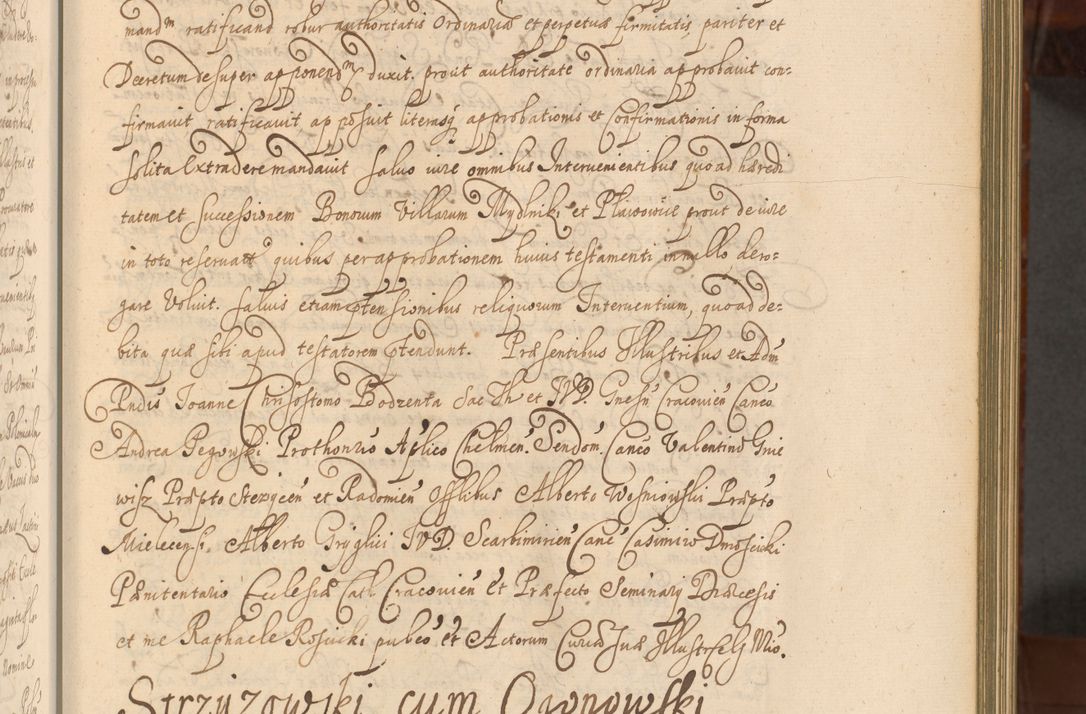 mandm ratificand robur authoritatis Ordinariæ et perpetuæ firmitatis, pariter et
Decretum desuper apponendm duxit. prout authoritate ordinaria approbavit con=
firmavit ratificavit apposuit literasq approbationis et Confirmationis in forma
solita Extradere mandavit salvo iure omnibus Intervenientibus quoad hæredi
tatem et successionem Bonorum Villarum Mydlniki et Plaiowice prout de iure
in toto reservatt quibus per approbationem huius testamenti in nullo dero=
gare Voluit. salvis etiam ptensionibus reliquorum Interventium, quoad de=
bita quæ sibi apud testatorem ptendunt. Præsentibus Illustribus et Adm
Rndis Ioanne Chrisostomo Bodzenta Sac Th et IVD. Gnesn Cracovien Canco
Andrea Pegowski Prothonrio Aplico Chelmen. Sendom. Canco Valentino Gnie
wisz Præpto Stezycen et Radomien Offlibus Alberto Wosniowski Præpto
Mielecensi. Alberto Gryglici IVD. Scarbimirien Canc Casimiro Dmosicki
Pænitentario Ecclesiæ Cath Cracovien et Præfecto Seminarÿ Diæcesis
et me Raphaele Rosicki pubco et Actorum Curiæ Suæ Illustr
Strzyzowski cum